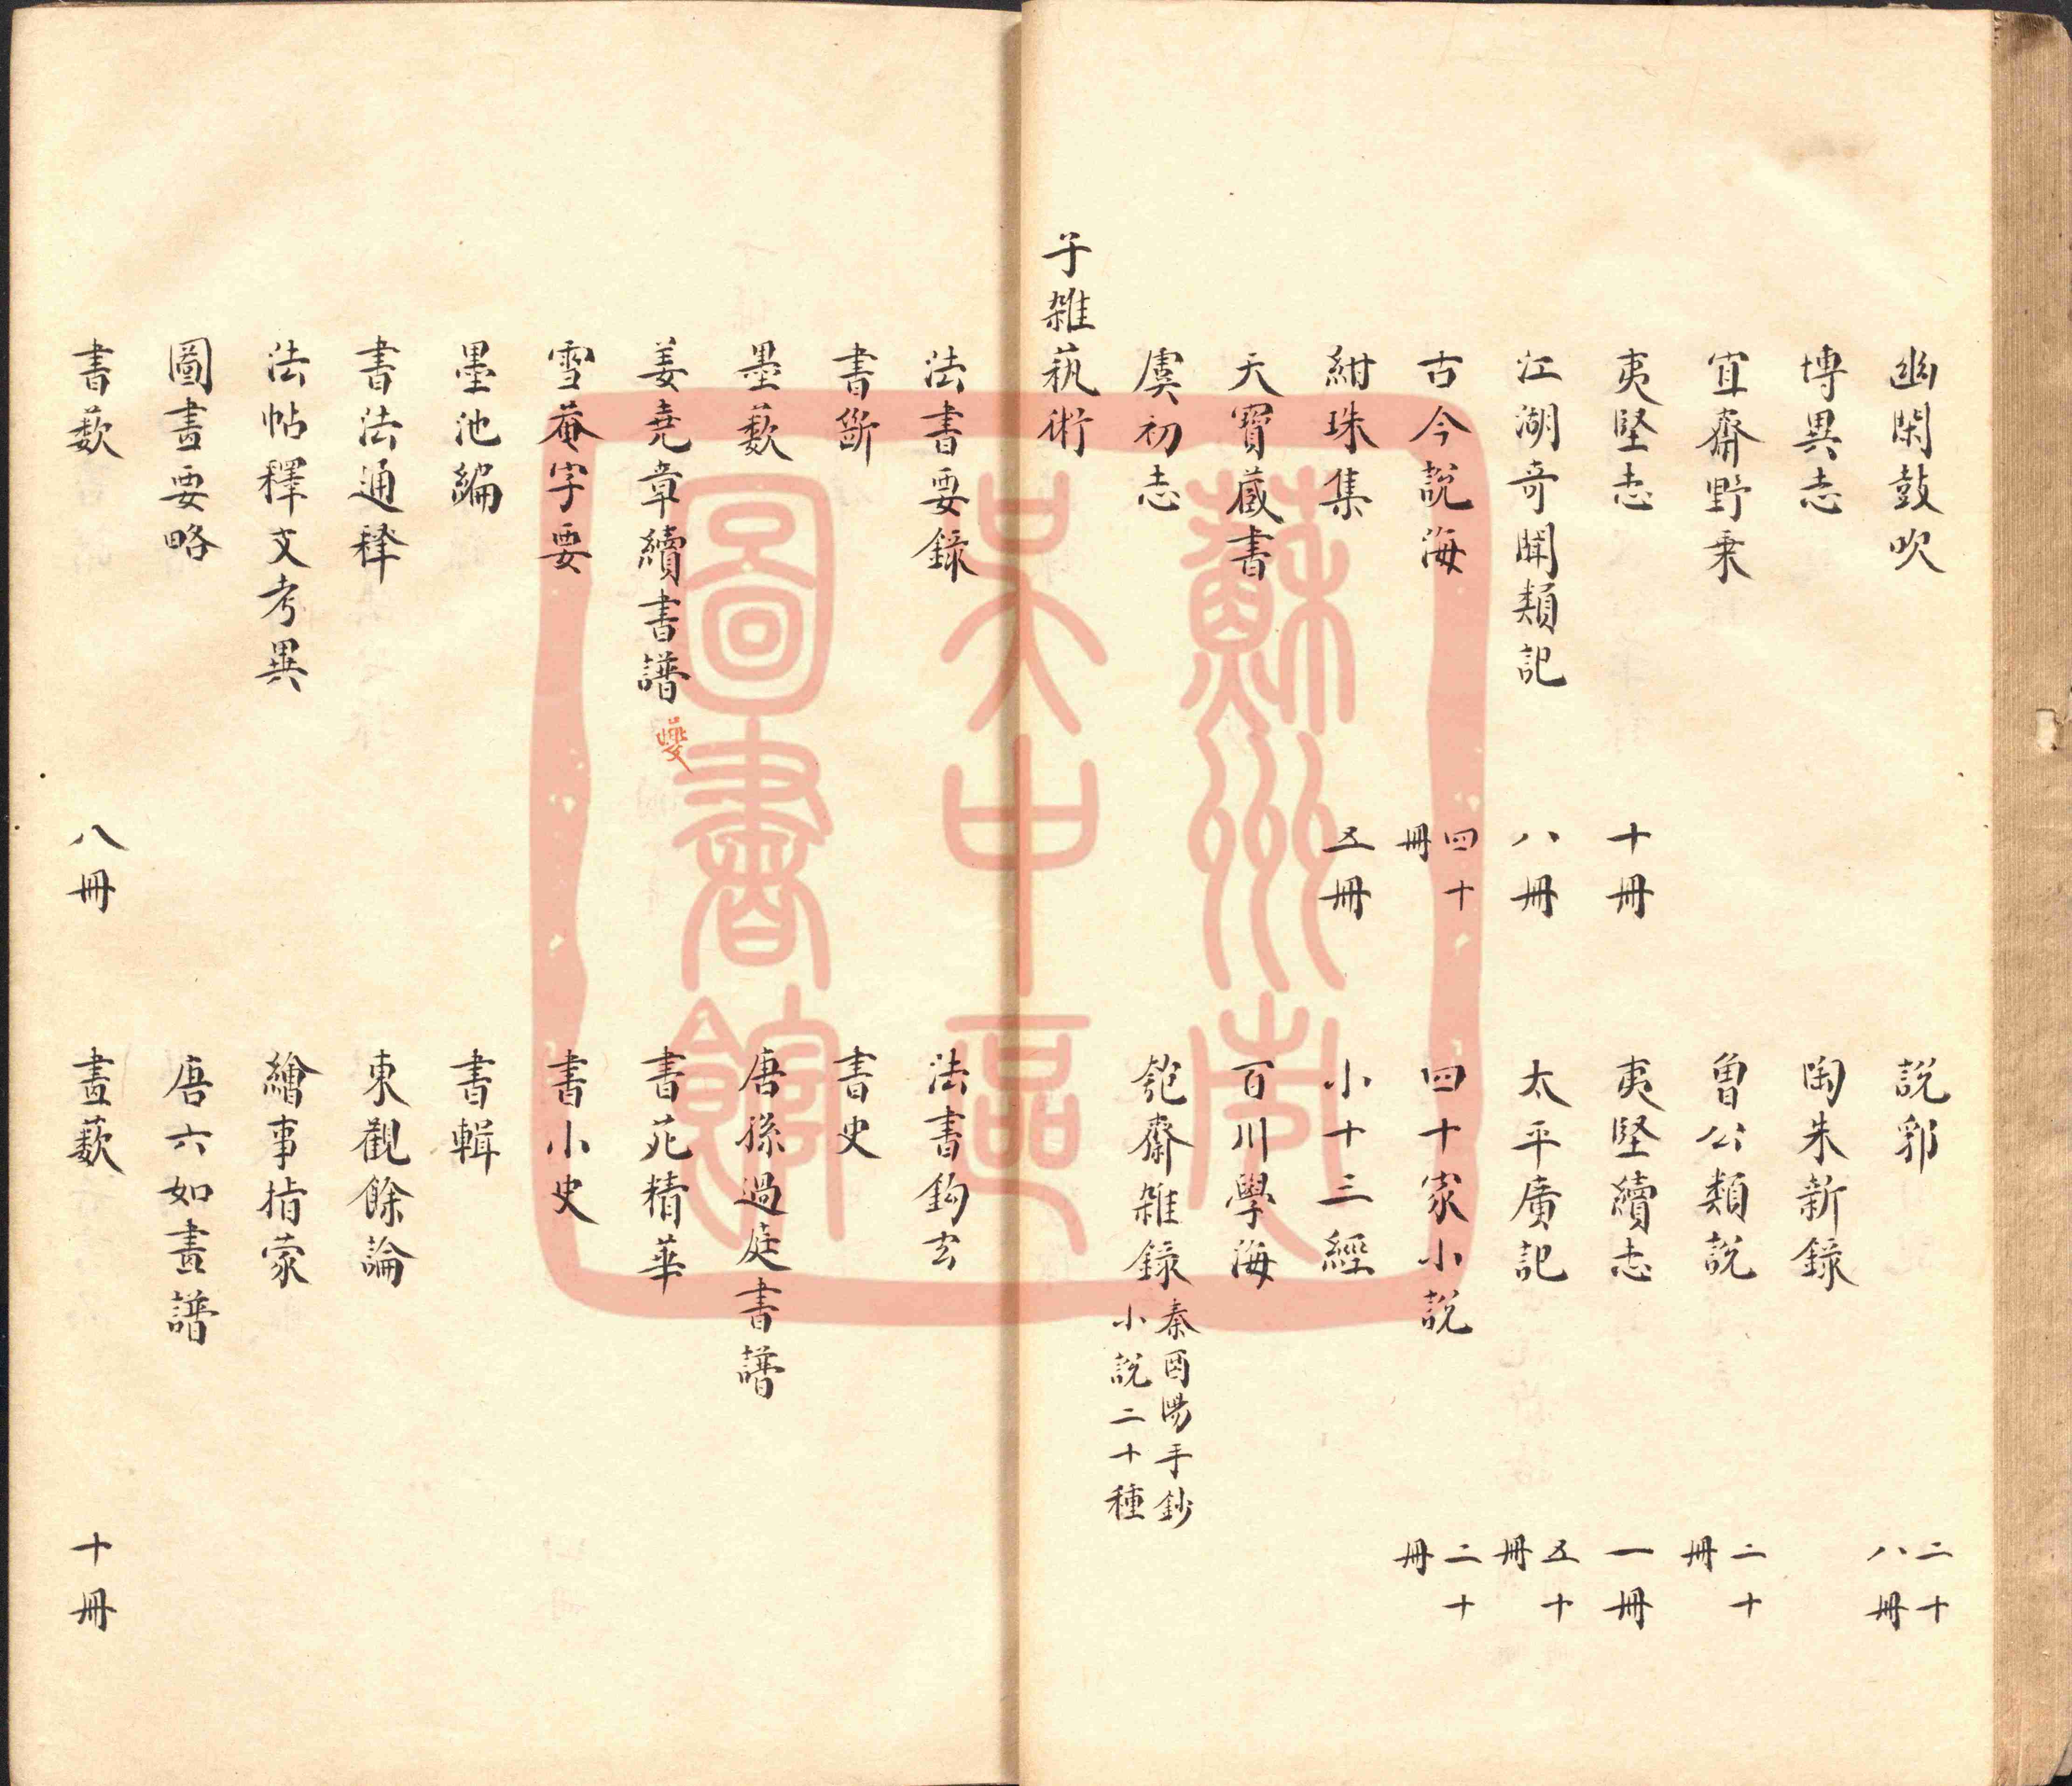 幽閑鼓吹 說郛 二十八冊
博異志 陶朱新錄
宜齋野乗 魯公類說 二十冊
夷堅志 十冊 夷堅續志 一冊
江湖奇聞類記 八冊 太平廣記 五十冊
古今說海 四十冊 四十家小說 二十冊
紺珠集 五冊 小十三經
天寶藏書 百川學海
虞初志 匏齋雑錄 秦酉陽手鈔小說二十種
子雑蓺術
法書要錄 法書鈎玄
書斷 書史
墨藪 唐孫過庭書譜
姜堯章續書譜 夔 書苑精華
雪菴字要 書小史
墨池編 書輯
書法通釋 東觀餘論
法帖釋文考異 繪事指蒙
圖畫要略 唐六如畫譜
書藪 八冊 畫藪 十冊
蘇州市
吴中區
圖書館